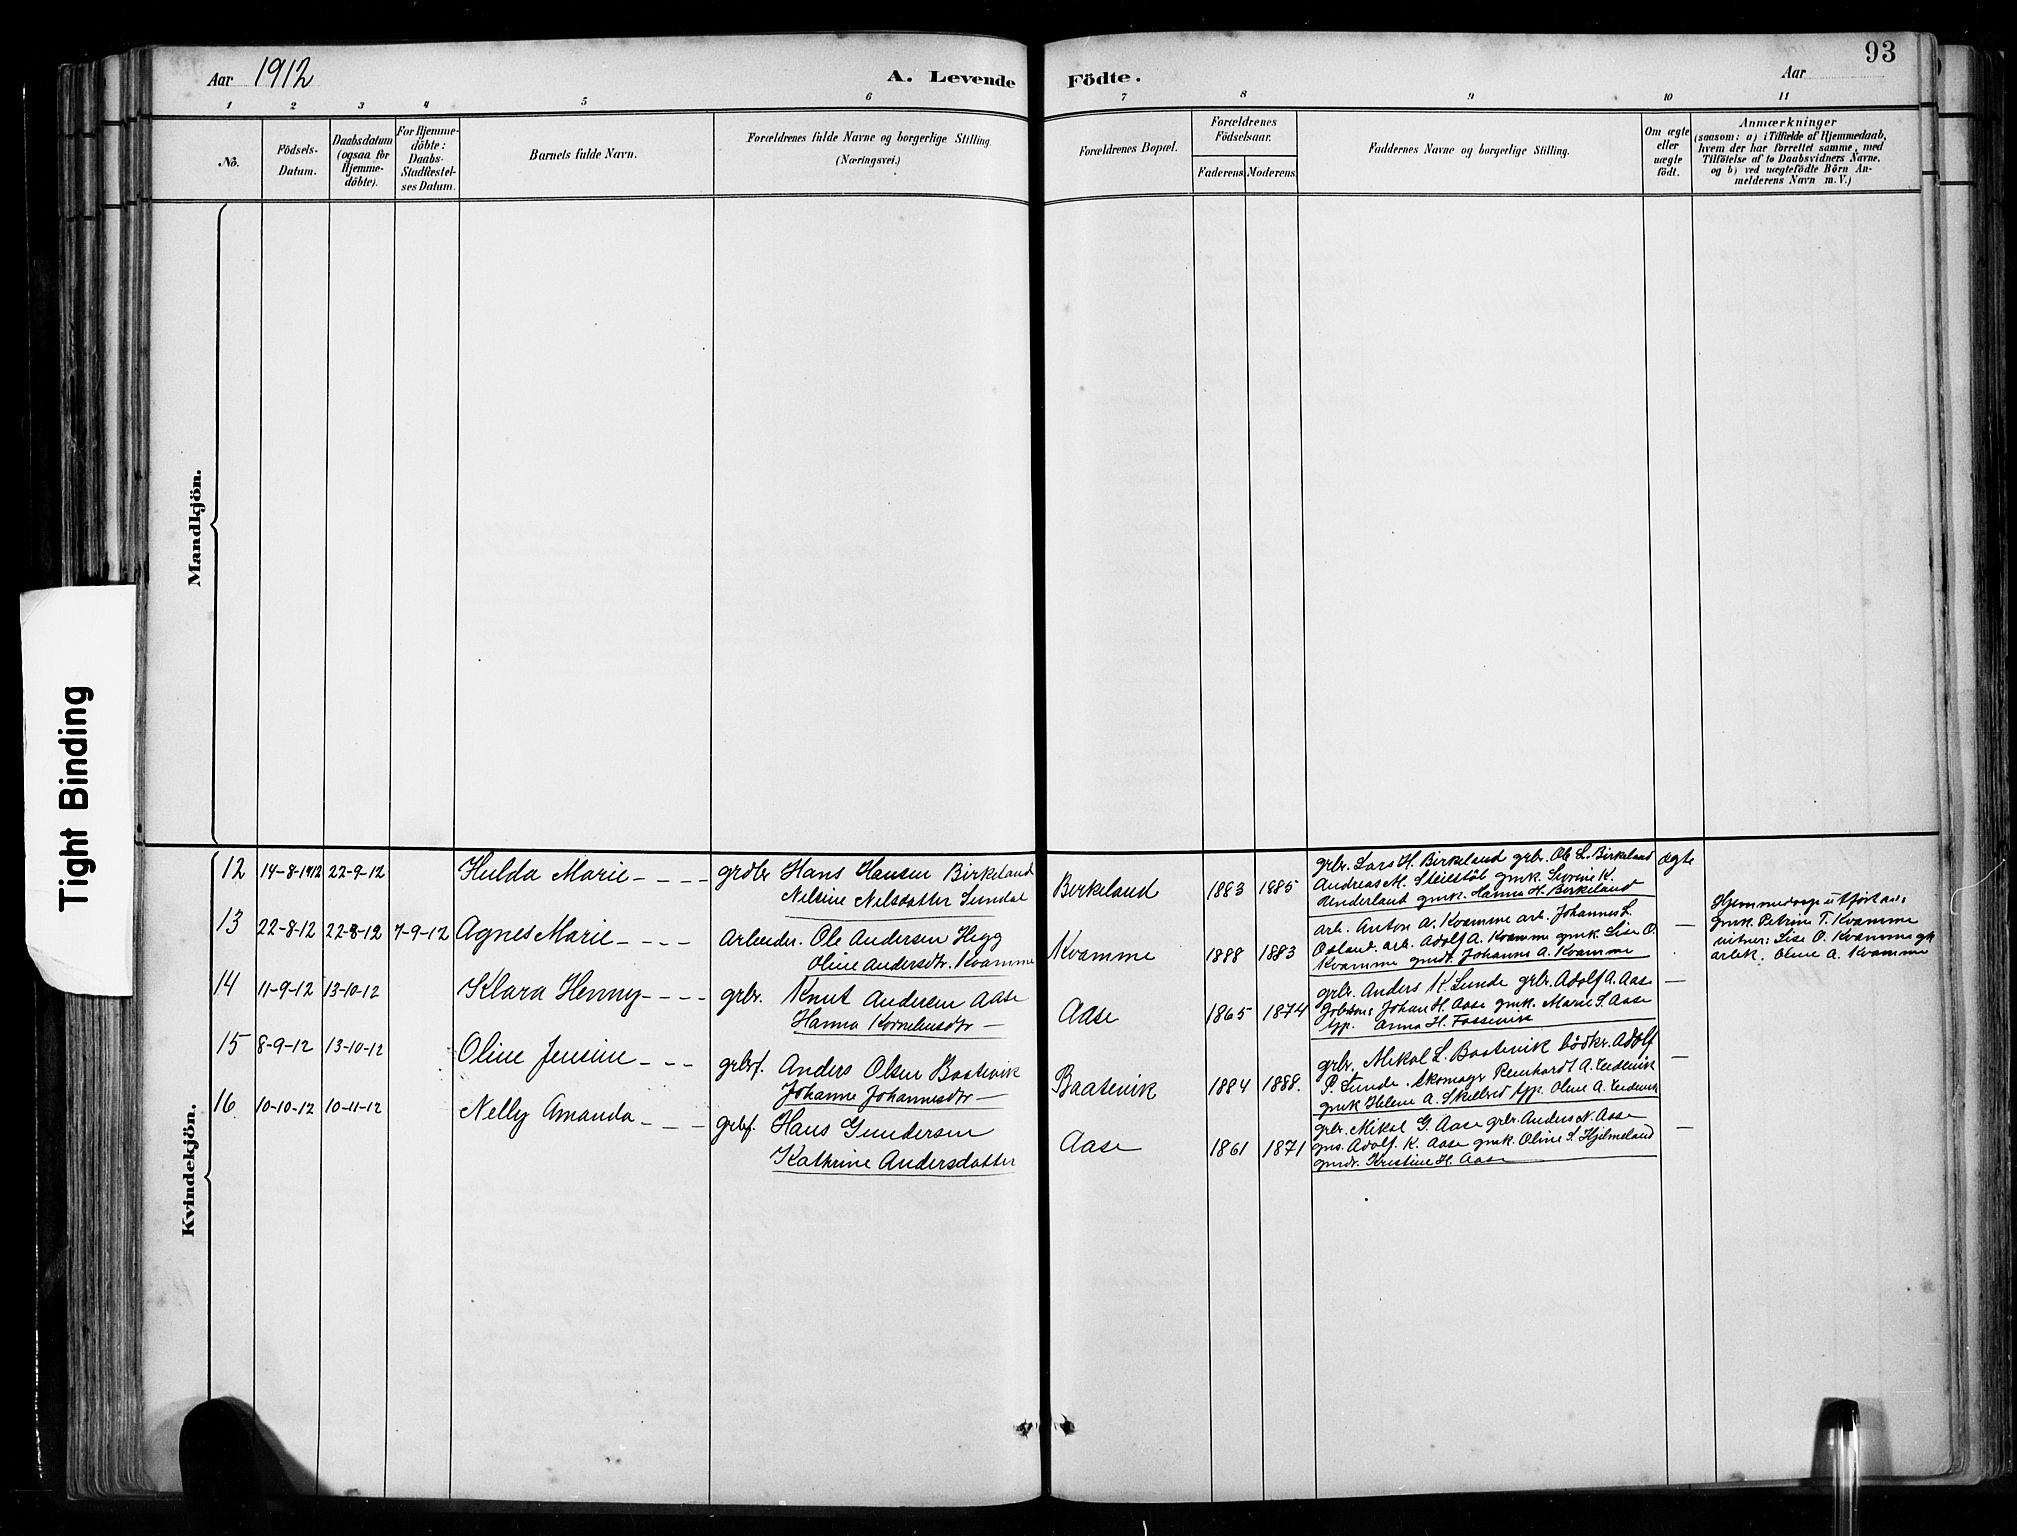 Aar 1912
A. Levende
Födte.
Aar
93
1 2 3 4 5 6 7 8 9 10 11
No.
Födsels-
Datum.
Daabsdatum
(ogsaa for
Hjemme-
döbte).
For Hjemme-
döbte:
Daabs-
Stadfæstel-
ses Datum.
Barnets fulde Navn.
Forældrenes fulde Navne og borgerlige Stilling.
(Næringsvei.)
Forældrenes Bopæl.
Forældrenes
Födselsaar.
Faderens Moderens
Faddernes Navne og borgerlige Stilling.
Om ægte
eller
uægte
födt.
Anmærkninger
(saasom: a) i Tilfælde af Hjemmedaab,
hvem der har forrettet samme, med
Tilföielse af to Daabsvidners Navne,
og b) ved uægtefödte Börn An-
melderens Navn m. V.)
Mandkjön.
Tight Binding
Kvindekjön.
12 14-8-1912 22-9-12 Hulda Marie - - - - grdbr Hans Hansen Birkeland
Nelsine Nilsdatter Sundal
Birkeland 1883 1885
grbr. Lars H. Birkeland grbr. Ole L. Birkeland
Andreas M. Steilstöb gmk. Severine K.
Underland gmk. Hanna H. Birkeland
ægte
13 22-8-12 22-8-12 7-9-12 Agnes Marie - - - - Arbeider. Ole Andersen Hegg
Oline Andersdtr. Kvamme
Kvamme 1888 1883
arb. Anton A. Kvamme arb. Johannes L.
Osland. arb. Adolf A. Kvamme gmk. Lise O.
Kvamme gmdt. Johanna A. Kvamme
—
Hjemmedaap utfört av:
Gmk. Petrine T. Kvamme
vitner: Lise O. Kvamme gk
arbk. Oline A. Kvamme
14 11-9-12 13-10-12 Klara Henny - - - - grbr. Knut Andersen Aase
Hanna Korneliusdtr —
Aase 1865 1874
grbr. Anders K. Lunde grbr. Adolf A. Aase
Johan H. Aase gmk. Marie S. Aase
tjp. Anna H. Fossevik
—
15 8-9-12 13-10-12 Oline Jensine - - - grbrf. Anders Olsen Baatevik
Johanne Johannesdtr —
Baatevik 1884 1888.
grbr. Mikal L. Baatevik bödkr. Adolf
P. Lunde. Skomagr Reinhardt A.
gmk Helene A. tjp. Oline A.
—
16. 10-10-12 10-11-12 Nelly Amanda - - - grbrf. Hans Gundersen
Kathrine Andersdatter
Aase 1861 1871
grbr. Mikal G. Aase grbr. Anders N. Aase
gms. Adolf. K. Aase gmk. Oline S. Hjelmeland
gmdt. Kristine H. Aase
—